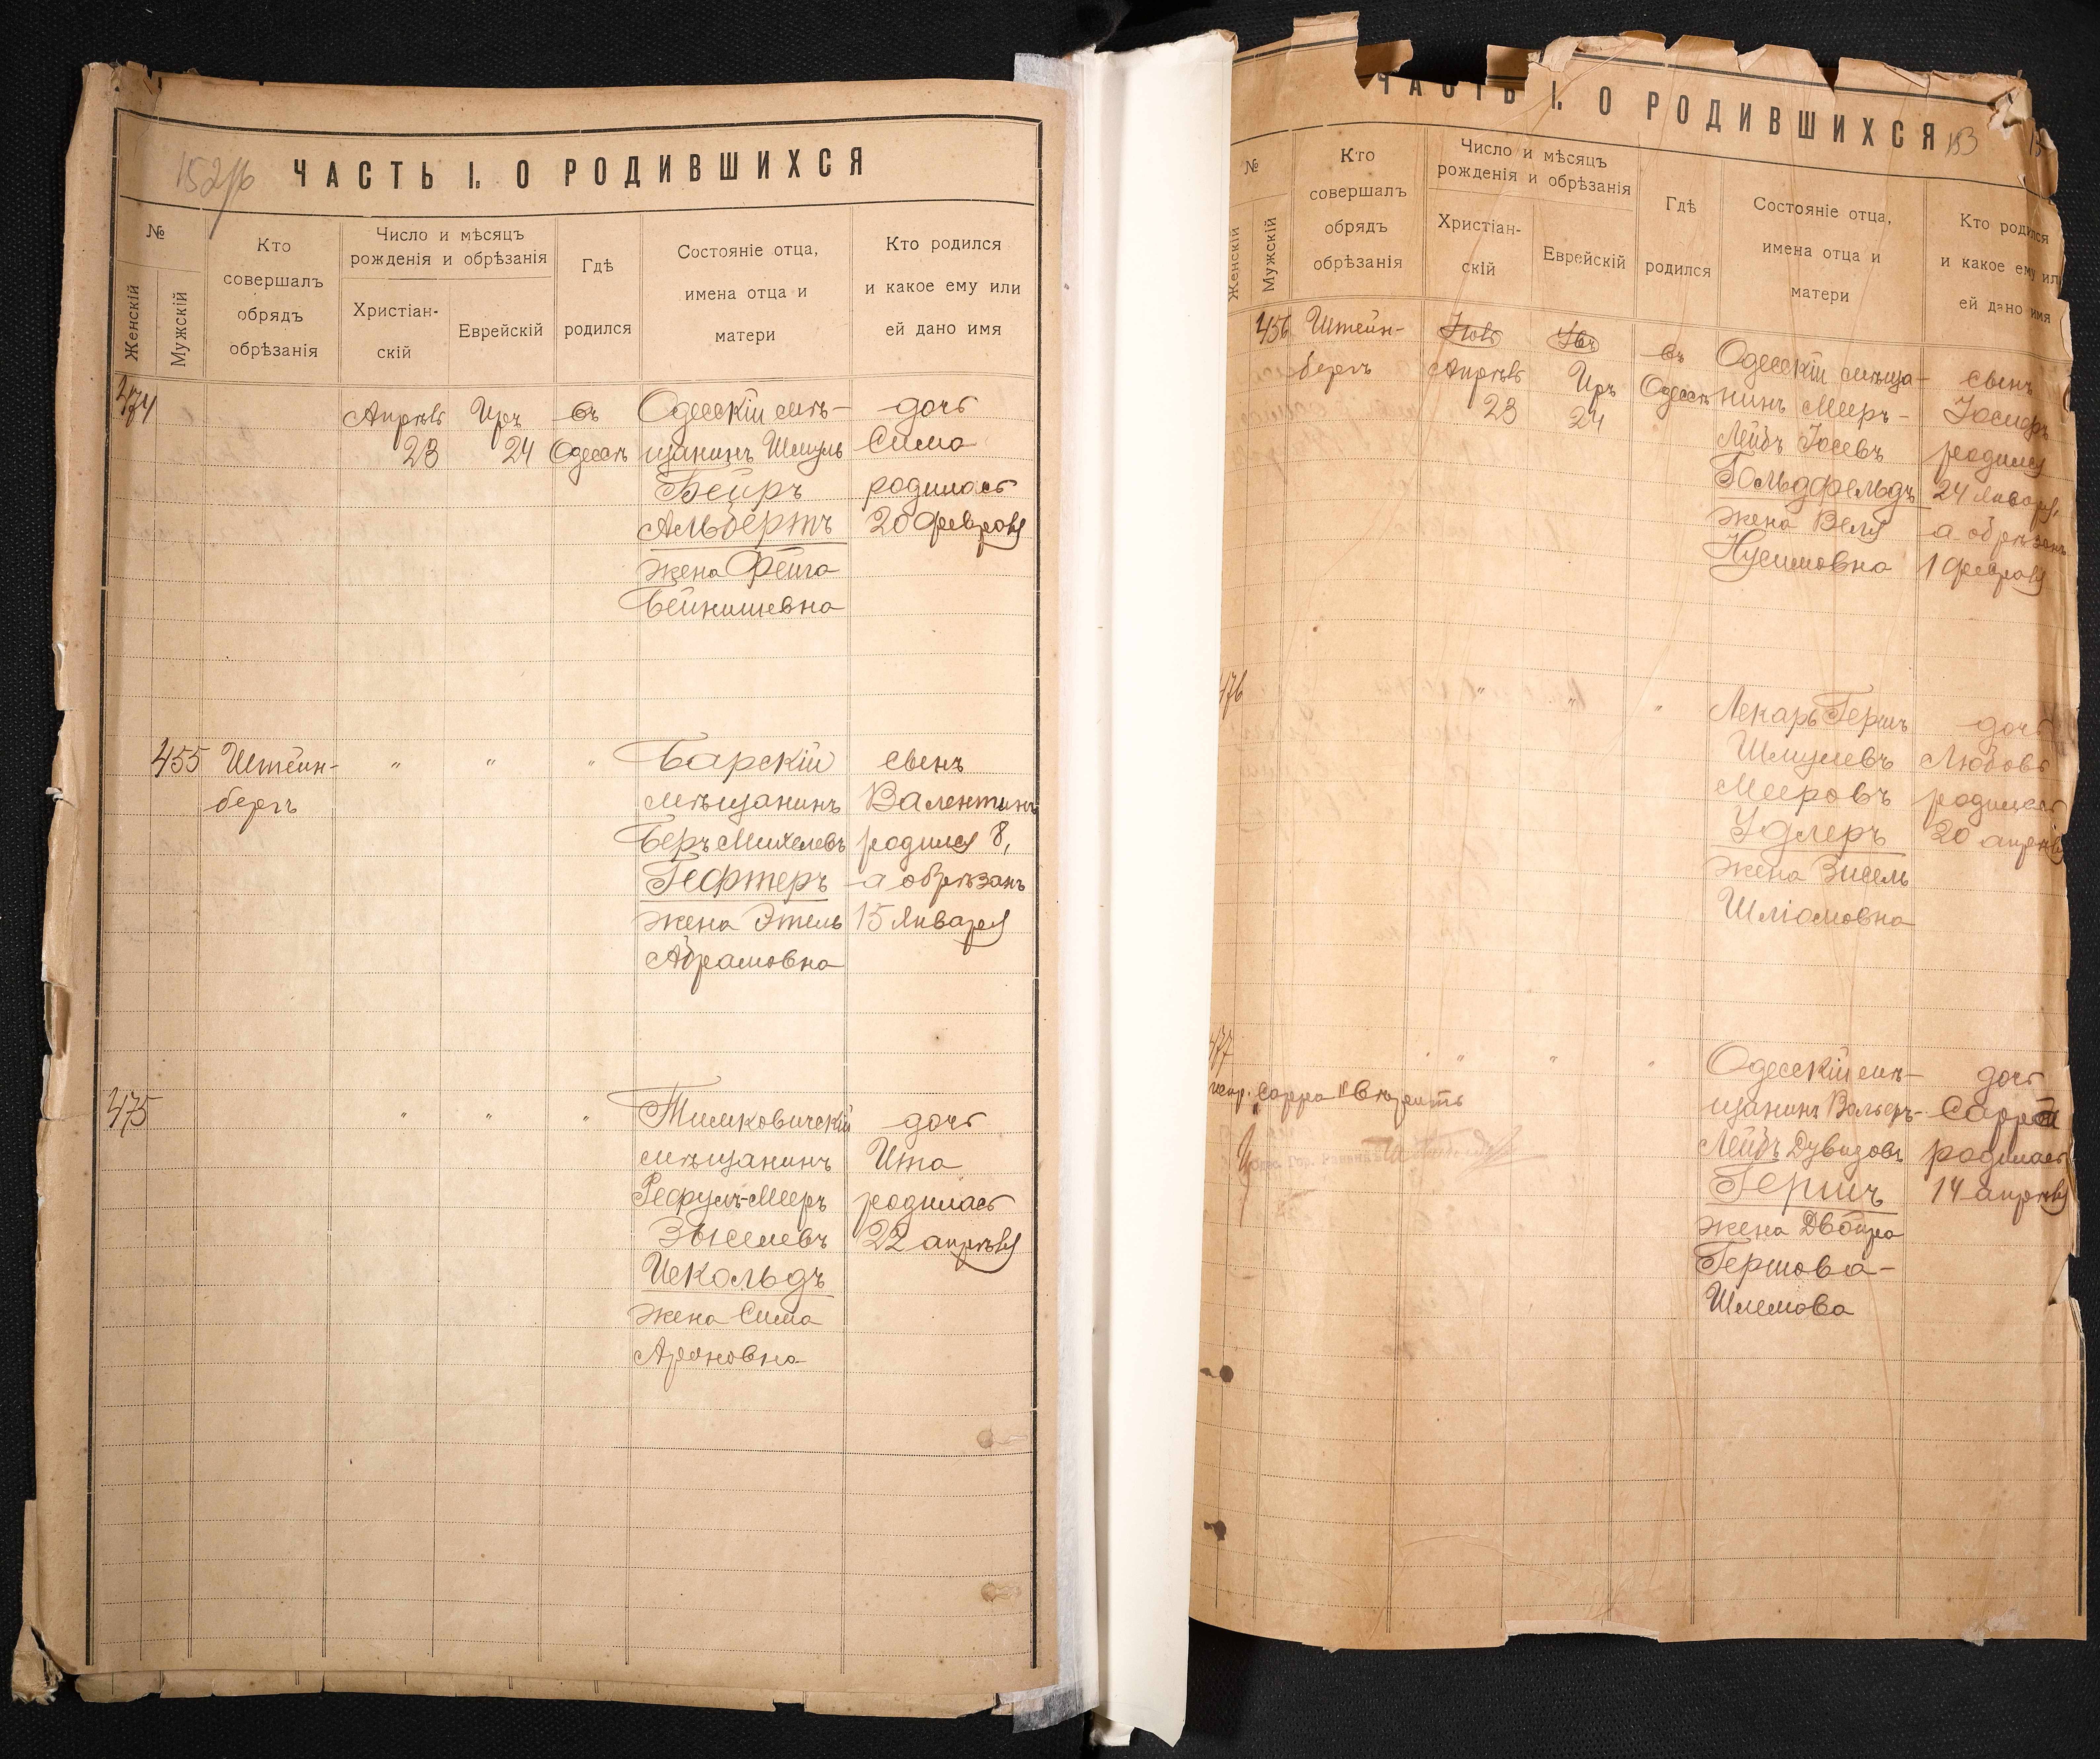 152/об
ЧАСТЬ I. О РОДИВШИХСЯ
№
Женскій
Мужскій
Кто
совершалъ
обрядъ
обрѣзанія
Число и мѣсяцъ
рожденія и обрѣзанія
Христіан-
скій
Еврейскій
Гдѣ
родился
Состояніе отца,
имена отца и
матери
Кто родился
и какое ему или
ей дано имя
474
Апрѣль
23
Иръ
24
въ
Одессѣ
Одесскій мѣ-
щанинъ Шмуль
Бейръ
Альбертъ
жена Фейга
Бейнишевна
дочь
Сима
родилась
20 февраля
455
Штейн-
бергъ
"
"
"
Барскій
мѣщанинъ
Беръ Михелевъ
Гефтеръ
жена Этель
Абрамовна
сынъ
Валентинъ
родился 8,
а обрѣзанъ
15 Января
475
"
"
"
Тимковичскій
мѣщанинъ
Рефулъ-Мееръ
Зыселевъ
Исkольдъ
жена Сима
Ароновна
дочь
Ита
родилась
22 апрѣля
ЧАСТЬ I. О РОДИВШИХСЯ
153
№
Женскій
Мужскій
Кто
совершалъ
обрядъ
обрѣзанія
Число и мѣсяцъ
рожденія и обрѣзанія
Христіан-
скій
Еврейскій
Гдѣ
родился
Состояніе отца,
имена отца и
матери
Кто родился
и какое ему или
ей дано имя
456
Штейн-
бергъ
Апрѣль
23
Иръ
24
въ
Одессѣ
Одесскій мѣща-
нинъ Мееръ-
Лейбъ Іосевъ
Гольдфельдъ
жена Веля
Нусимовна
сынъ
Іосифъ
родился
24 Января,
а обрѣзанъ
1 февраля
476
"
"
"
Лекарь Гершъ
Шмулевъ
Мееровъ
Удлеръ
жена Зисель
Шліомовна
дочь
Любовь
родилась
20 апрѣля
477
"
"
"
Одесскій мѣ-
щанинъ Вольфъ-
Лейбъ Дувидовъ
Гершъ
жена Двойра
Гершова-
Шлемова
дочь
Сарра
родилась
14 апрѣля
испр. "Сарра" вѣрить